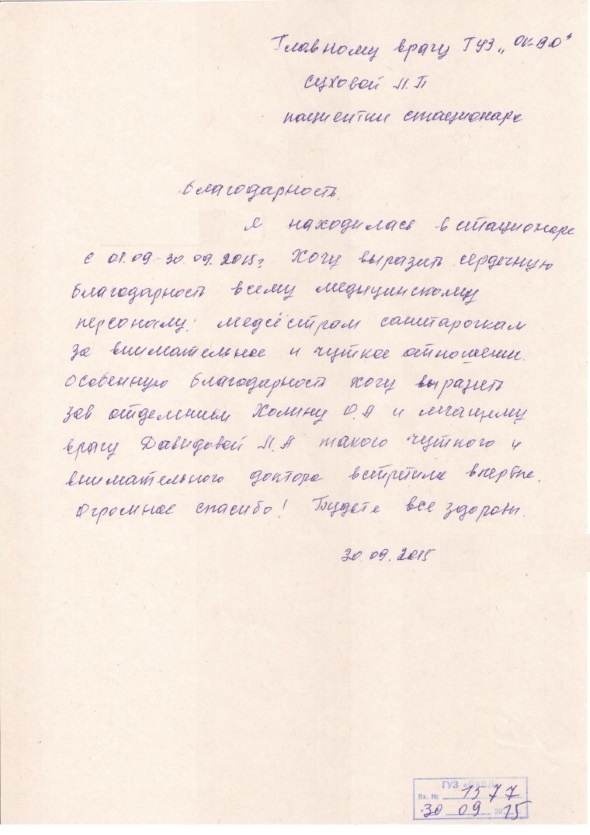 Главному врачу ГУЗ „ОКВД"
Суховой Л.П
пациентки стационара
Благодарность
Я находилась в стационаре
с 01.09-30.09.2015г Хочу выразить сердечную
благодарность всему медицинскому
персоналу: медсёстрам санитарочкам
за внимательное и чуткое отношении.
Особенную благодарность хочу выразить
зав отделением Хомину О.А и лечащему
врачу Давидовой Л.А такого чуткого и
внимательного доктора встретила впервые.
Огромное спасибо! Будьте все здоровы.
30.09.2015
ГУЗ «ОКВД»
Вх. № 1577
30 09 2015